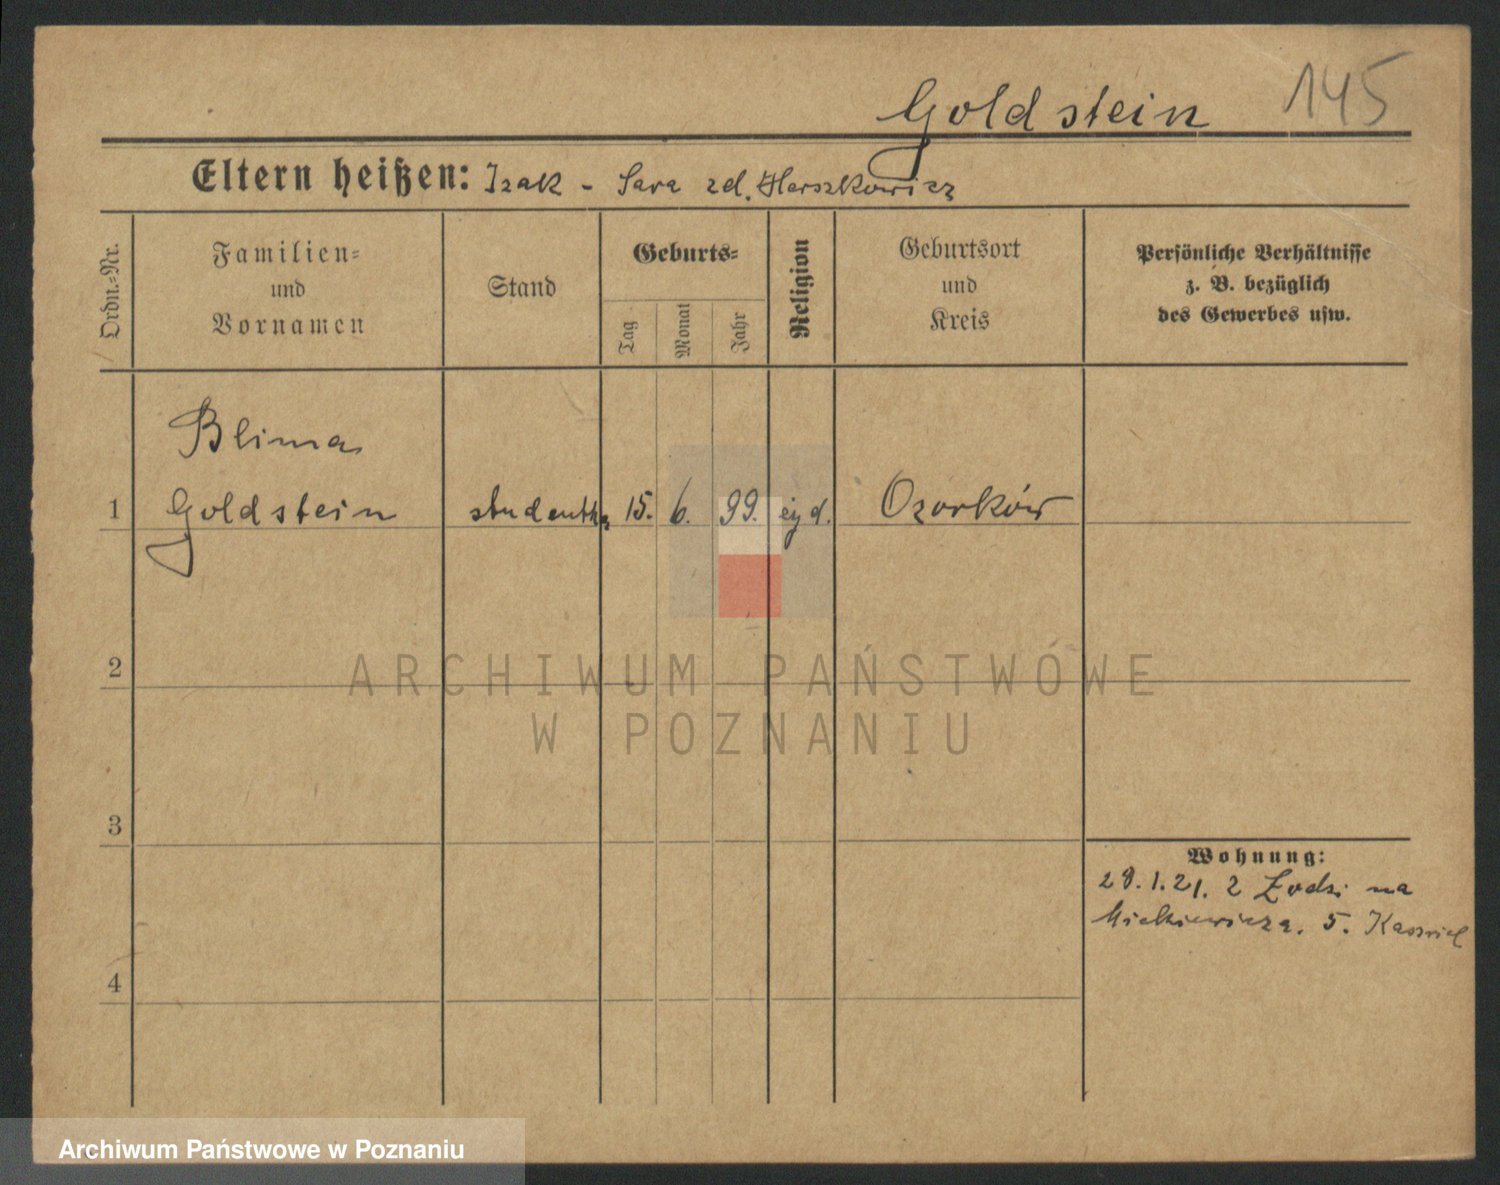 Goldstein 145
Eltern heißen: Izak - Sara zd. Herszkowicz
Ordn.-Nr.
Familien-
und
Vornamen
Stand
Geburts-
Tag
Monat
Jahr
Religion
Geburtsort
und
Kreis
Persönliche Verhältnisse
z. B. bezüglich
des Gewerbes usw.
Blima
1 Goldstein studentka 15. 6. 99. Ozorków
2
3
4
Wohnung:
28.1.21. z Łodzi na
Mickiewicza. 5.
ARCHIWUM PAŃSTWOWE
W POZNANIU
Archiwum Państwowe w Poznaniu